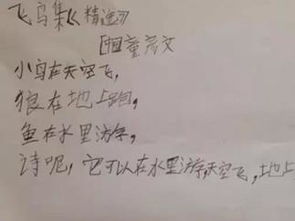 飞鸟集《精选》
童文
小鸟在天空飞，
狼在地上跑，
鱼在水里游，
诗呢，它可以在水里游，天空飞，地上